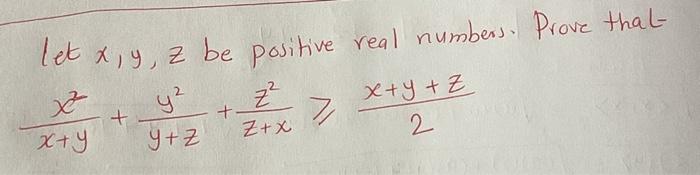 let x, y, z be positive real numbers. Prove that
x²/(x+y) + y²/(y+z) + z²/(z+x) ⩾ (x+y+z)/2